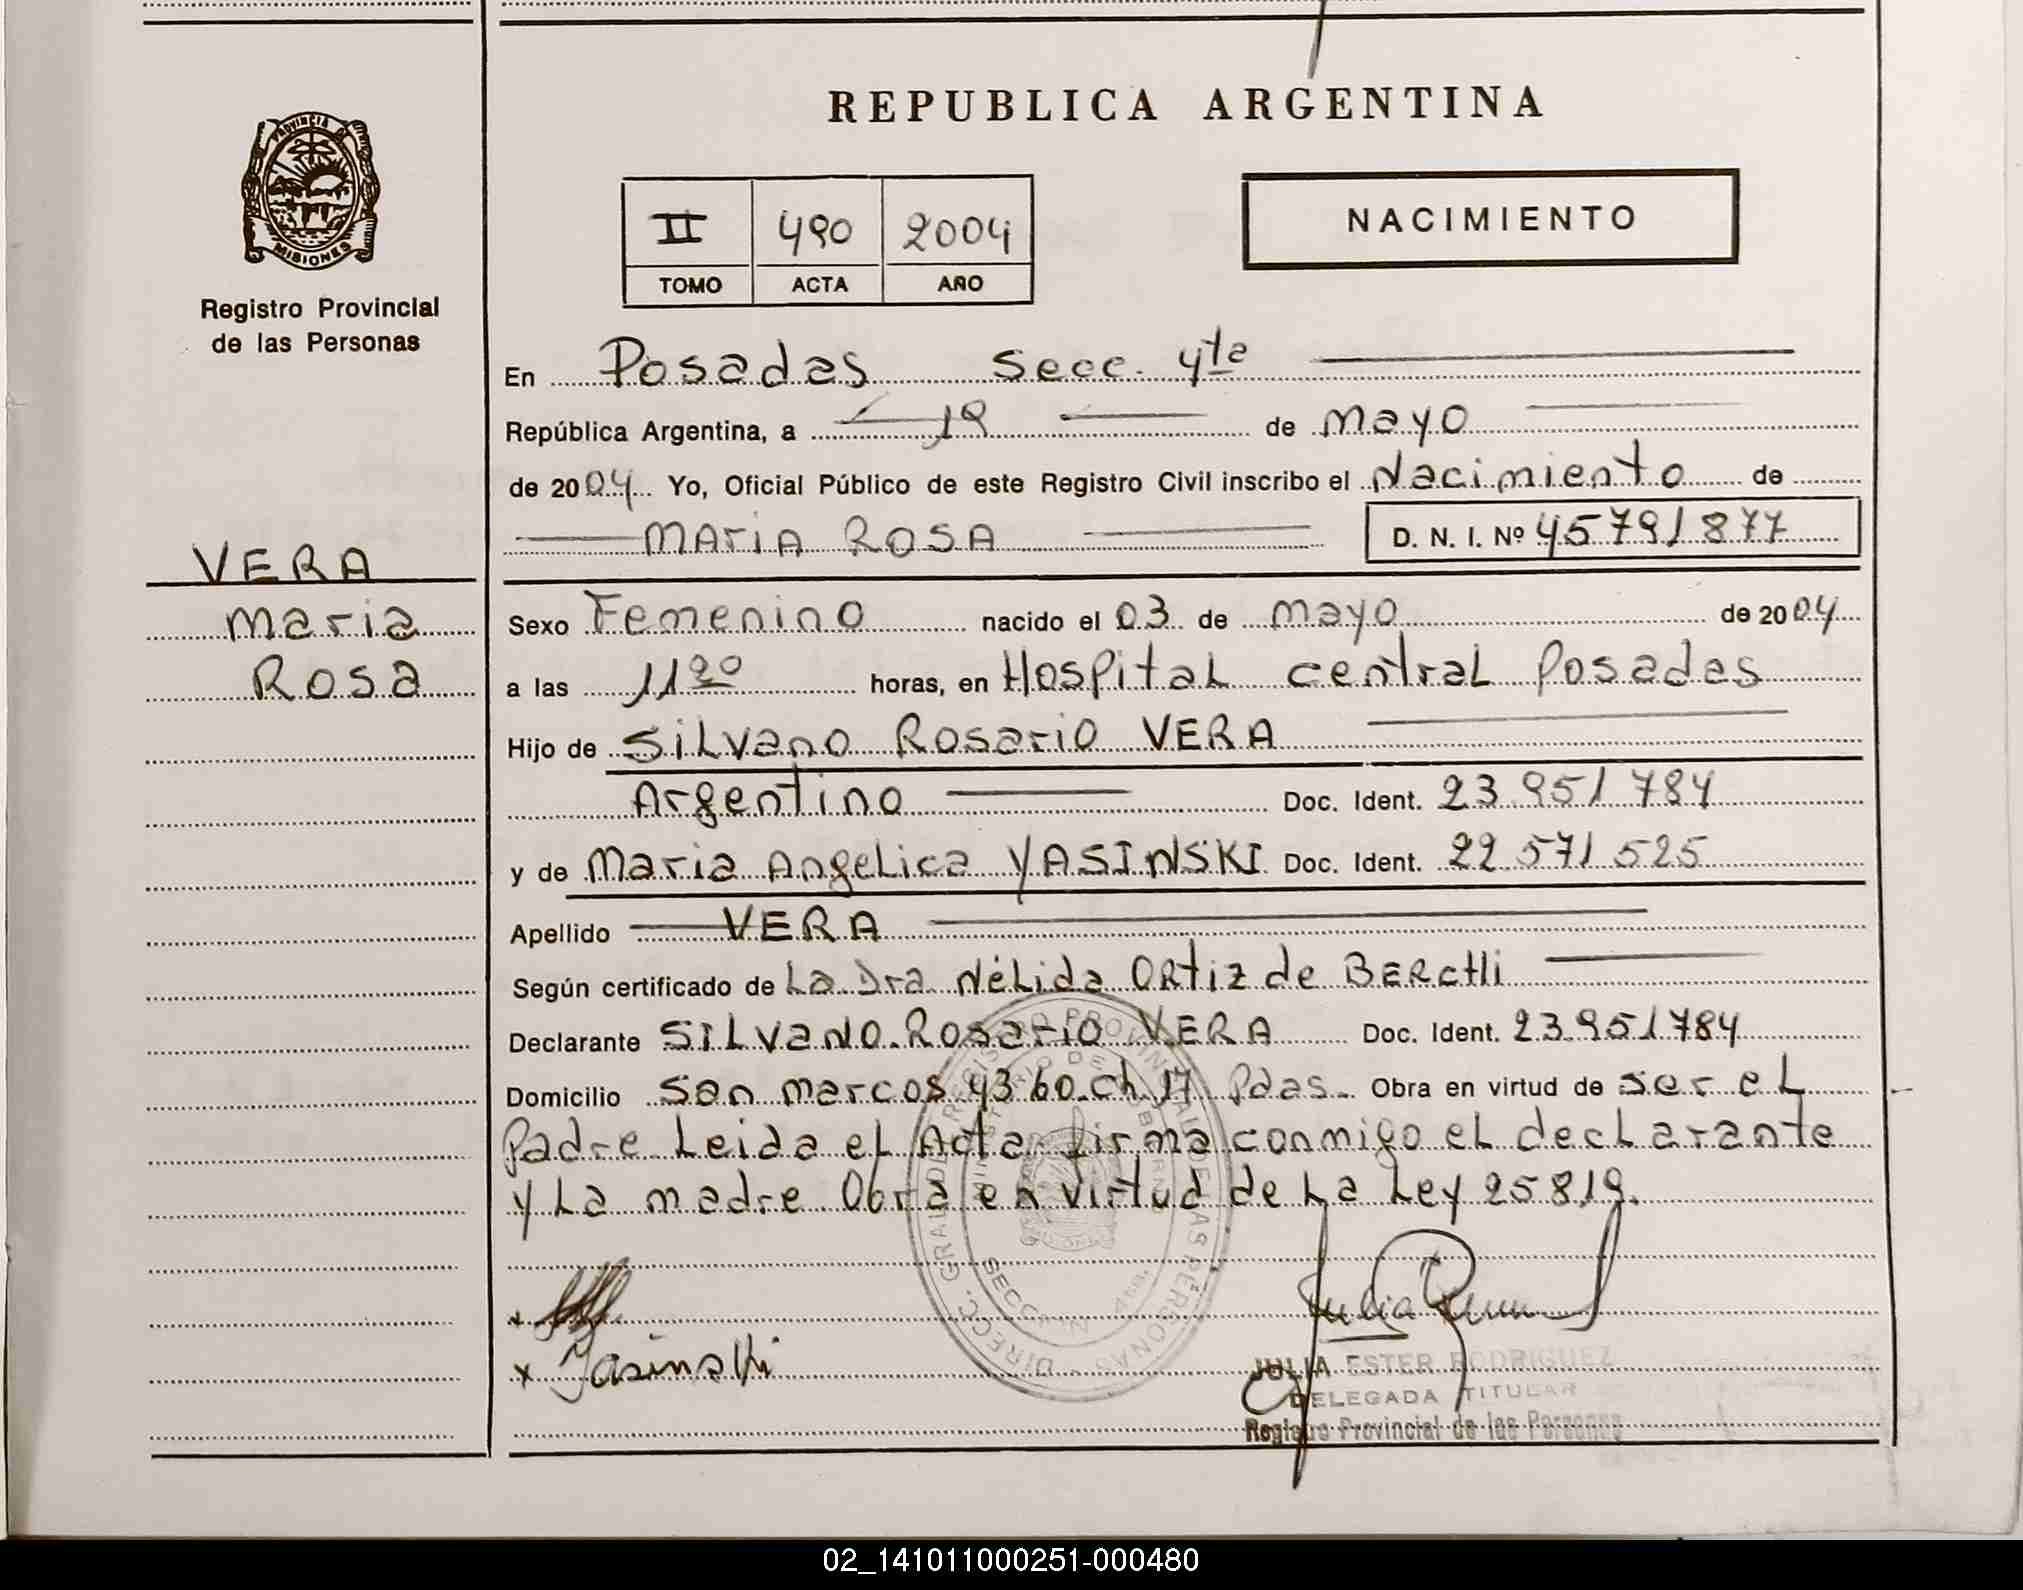 REPUBLICA ARGENTINA
PROVINCIA DE
MISIONES
Registro Provincial
de las Personas
II 490 2004
TOMO ACTA AÑO
NACIMIENTO
En Posadas Secc. 4ta
República Argentina, a 19 de mayo
de 2004 Yo, Oficial Público de este Registro Civil inscribo el Nacimiento de
MARIA ROSA D. N. I. Nº 45791877
VERA
Maria
Rosa
Sexo Femenino nacido el 03 de mayo de 2004
a las 11 20 horas, en Hospital central Posadas
Hijo de Silvano Rosario VERA
Argentino Doc. Ident. 23.951 784
y de Maria Angelica YASINSKI Doc. Ident. 22 571 525
Apellido VERA
Según certificado de La Dra Nélida Ortiz de BERctli
Declarante SILvano Rosario VERA Doc. Ident. 23.951784
Domicilio San marcos 4360. ch. 17 Pdas. Obra en virtud de ser el
Padre Leida el Acta firma conmigo el declarante
y La madre Obra en virtud de La Ley 25819.
DIRECC. GRAL. DEL REGISTRO PROVINCIAL DE LAS PERSONAS
MINISTERIO DE GOBIERNO
SECCION 4ta.
Yasinski
JULIA ESTER RODRIGUEZ
DELEGADA TITULAR
Registro Provincial de las Personas
02_141011000251-000480